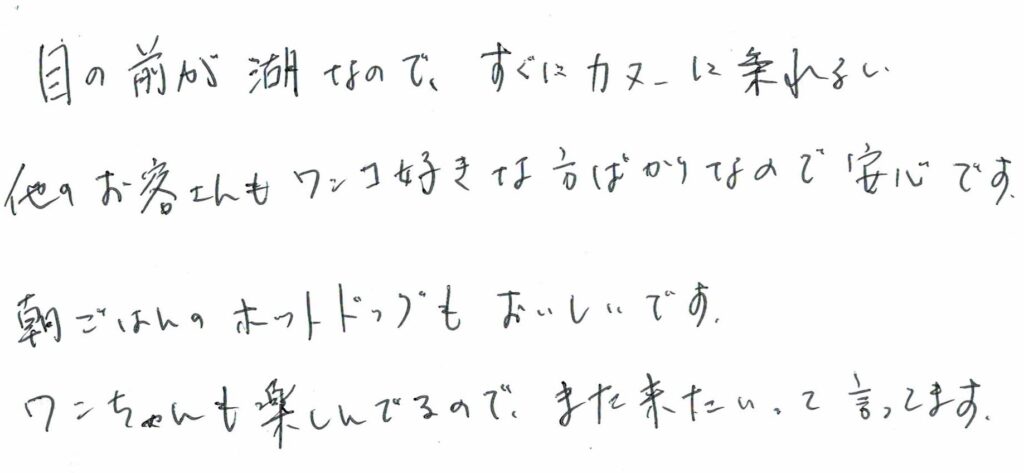 目の前が湖なので、すぐにカヌーに乗れるし
他のお客さんもワンコ好きな方ばかりなので安心です.
朝ごはんのホットドッグもおいしいです.
ワンちゃんも楽しんでるので、また来たいって言ってます.